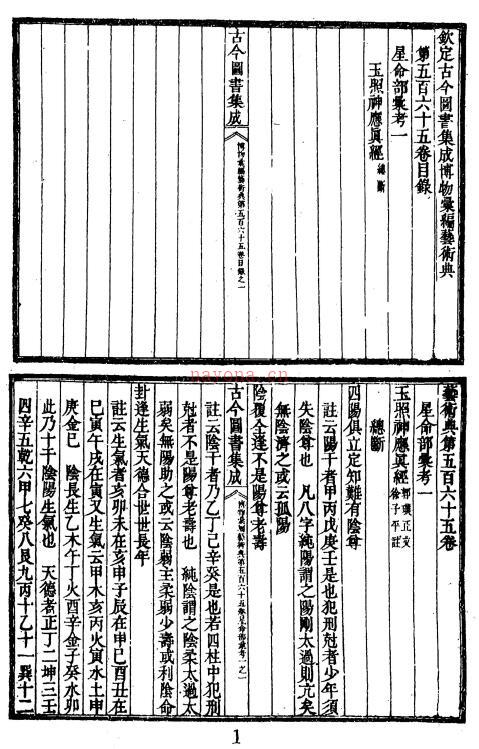 欽定古今圖書集成博物彙編藝術典
第五百六十五卷目錄
星命部彙考一
玉照神應眞經 總斷
古今圖書集成 博物彙編藝術典第五百六十五卷目錄之一
藝術典第五百六十五卷
星命部彙考一
玉照神應眞經 郭璞正文 徐子平註
總斷
四陽俱立定知難有陰尊
註云陽干者甲丙戊庚壬是也犯刑尅者少年須
失陰尊也 凡八字純陽謂之陽剛太過則亢矣
無陰濟之或云孤陽
陰覆全逢不是陽尊老壽
古今圖書集成 博物彙編藝術典第五百六十五卷星命部彙考一之一
註云陰干者乃乙丁己辛癸是也若四柱中犯刑
尅者不是陽尊老壽也 純陰謂之陰柔太過太
弱矣無陽助之或云陰弱主柔弱少壽或利陰命
卦逢生氣天德合世世長年
註云生氣者亥卯未在亥申子辰在申巳酉丑在
巳寅午戌在寅又生氣云甲木亥丙火寅水土申
庚金巳 陰長生乙木午丁火酉辛金子癸水卯
此乃十干陰陽生氣也 天德者正丁二坤三壬
四辛五乾六甲七癸八艮九丙十乙十一巽十二
nayona.cn
1